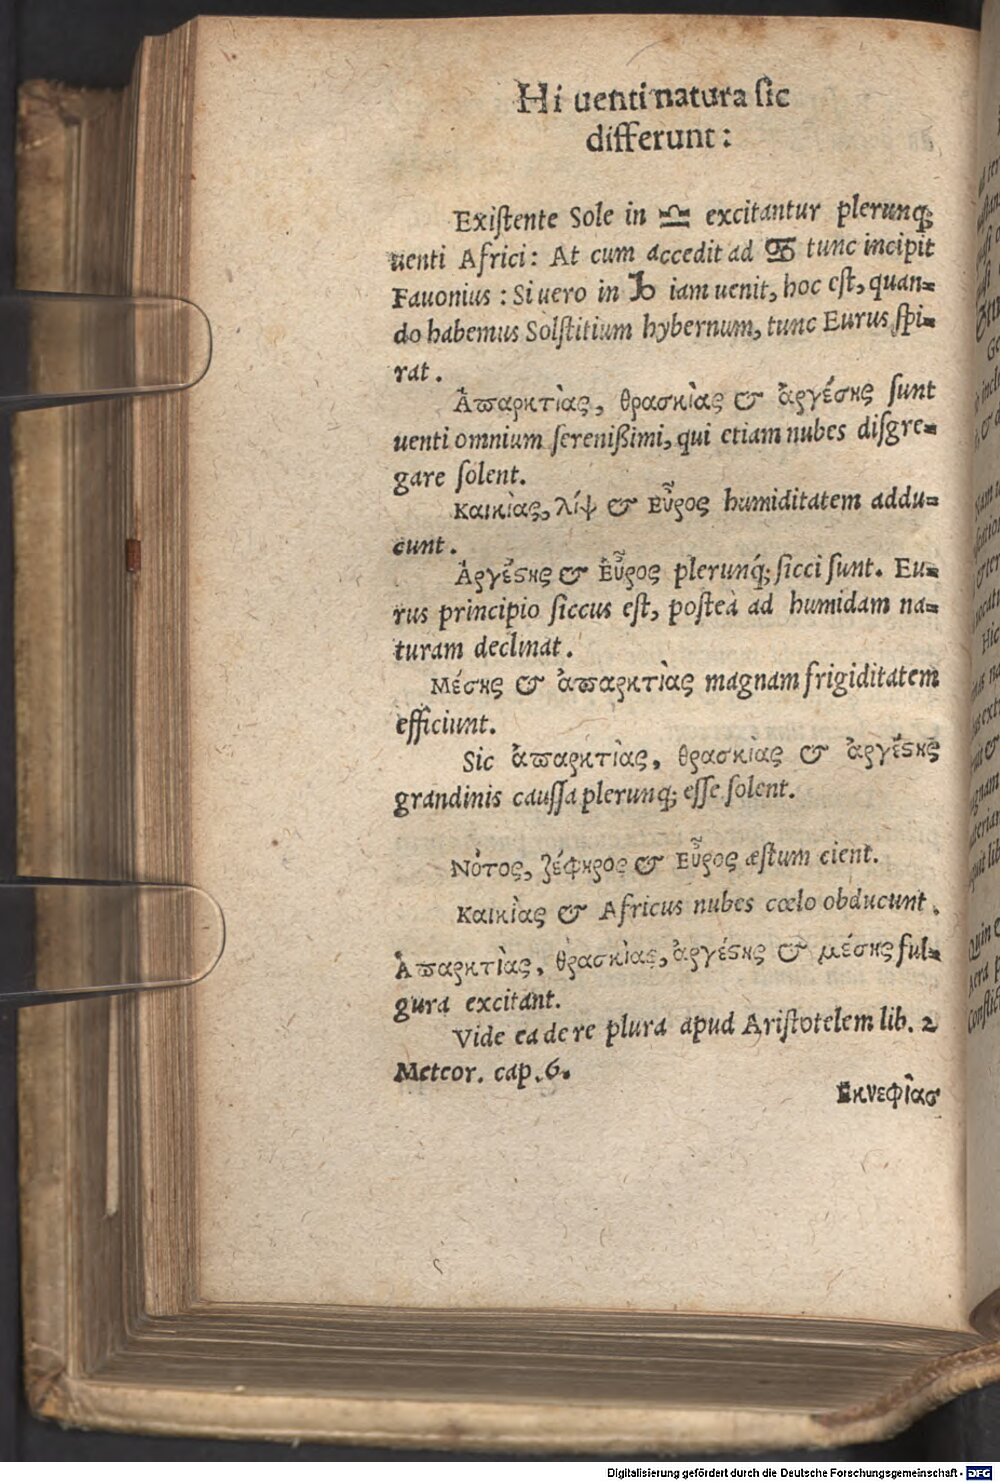 Hi uenti natura sic
differunt:
Existente Sole in ♎ excitantur plerunq;
uenti Africi: At cum accedit ad ♋ tunc incipit
Fauonius: Si uero in ♑ iam uenit, hoc est, quan=
do habemus Solstitium hybernum, tunc Eurus spi=
rat.
Ἀπαρκτίας, θρασκίας & ἀργέσης sunt
uenti omnium serenißimi, qui etiam nubes disgre=
gare solent.
Καικίας, λίψ & Εὖρος humiditatem addu=
cunt.
Ἀργέστης & Εὖρος plerunq́; sicci sunt. Eu=
rus principio siccus est, posteà ad humidam na=
turam declinat.
Μέσης & ἀπαρκτίας magnam frigiditatem
efficiunt.
Sic ἀπαρκτίας, θρασκίας & ἀργέστης
grandinis caussa plerunq; esse solent.
Νότος, ζέφηρος & Εὖρος æstum cient.
Καικίας & Africus nubes cœlo obducunt.
Ἀπαρκτίας, θρασκίας, ἀργέστης & μέσης ful=
gura excitant.
Vide ea de re plura apud Aristotelem lib. 2
Meteor. cap. 6.
Εκνεφίας
Digitalisierung gefördert durch die Deutsche Forschungsgemeinschaft - DFG